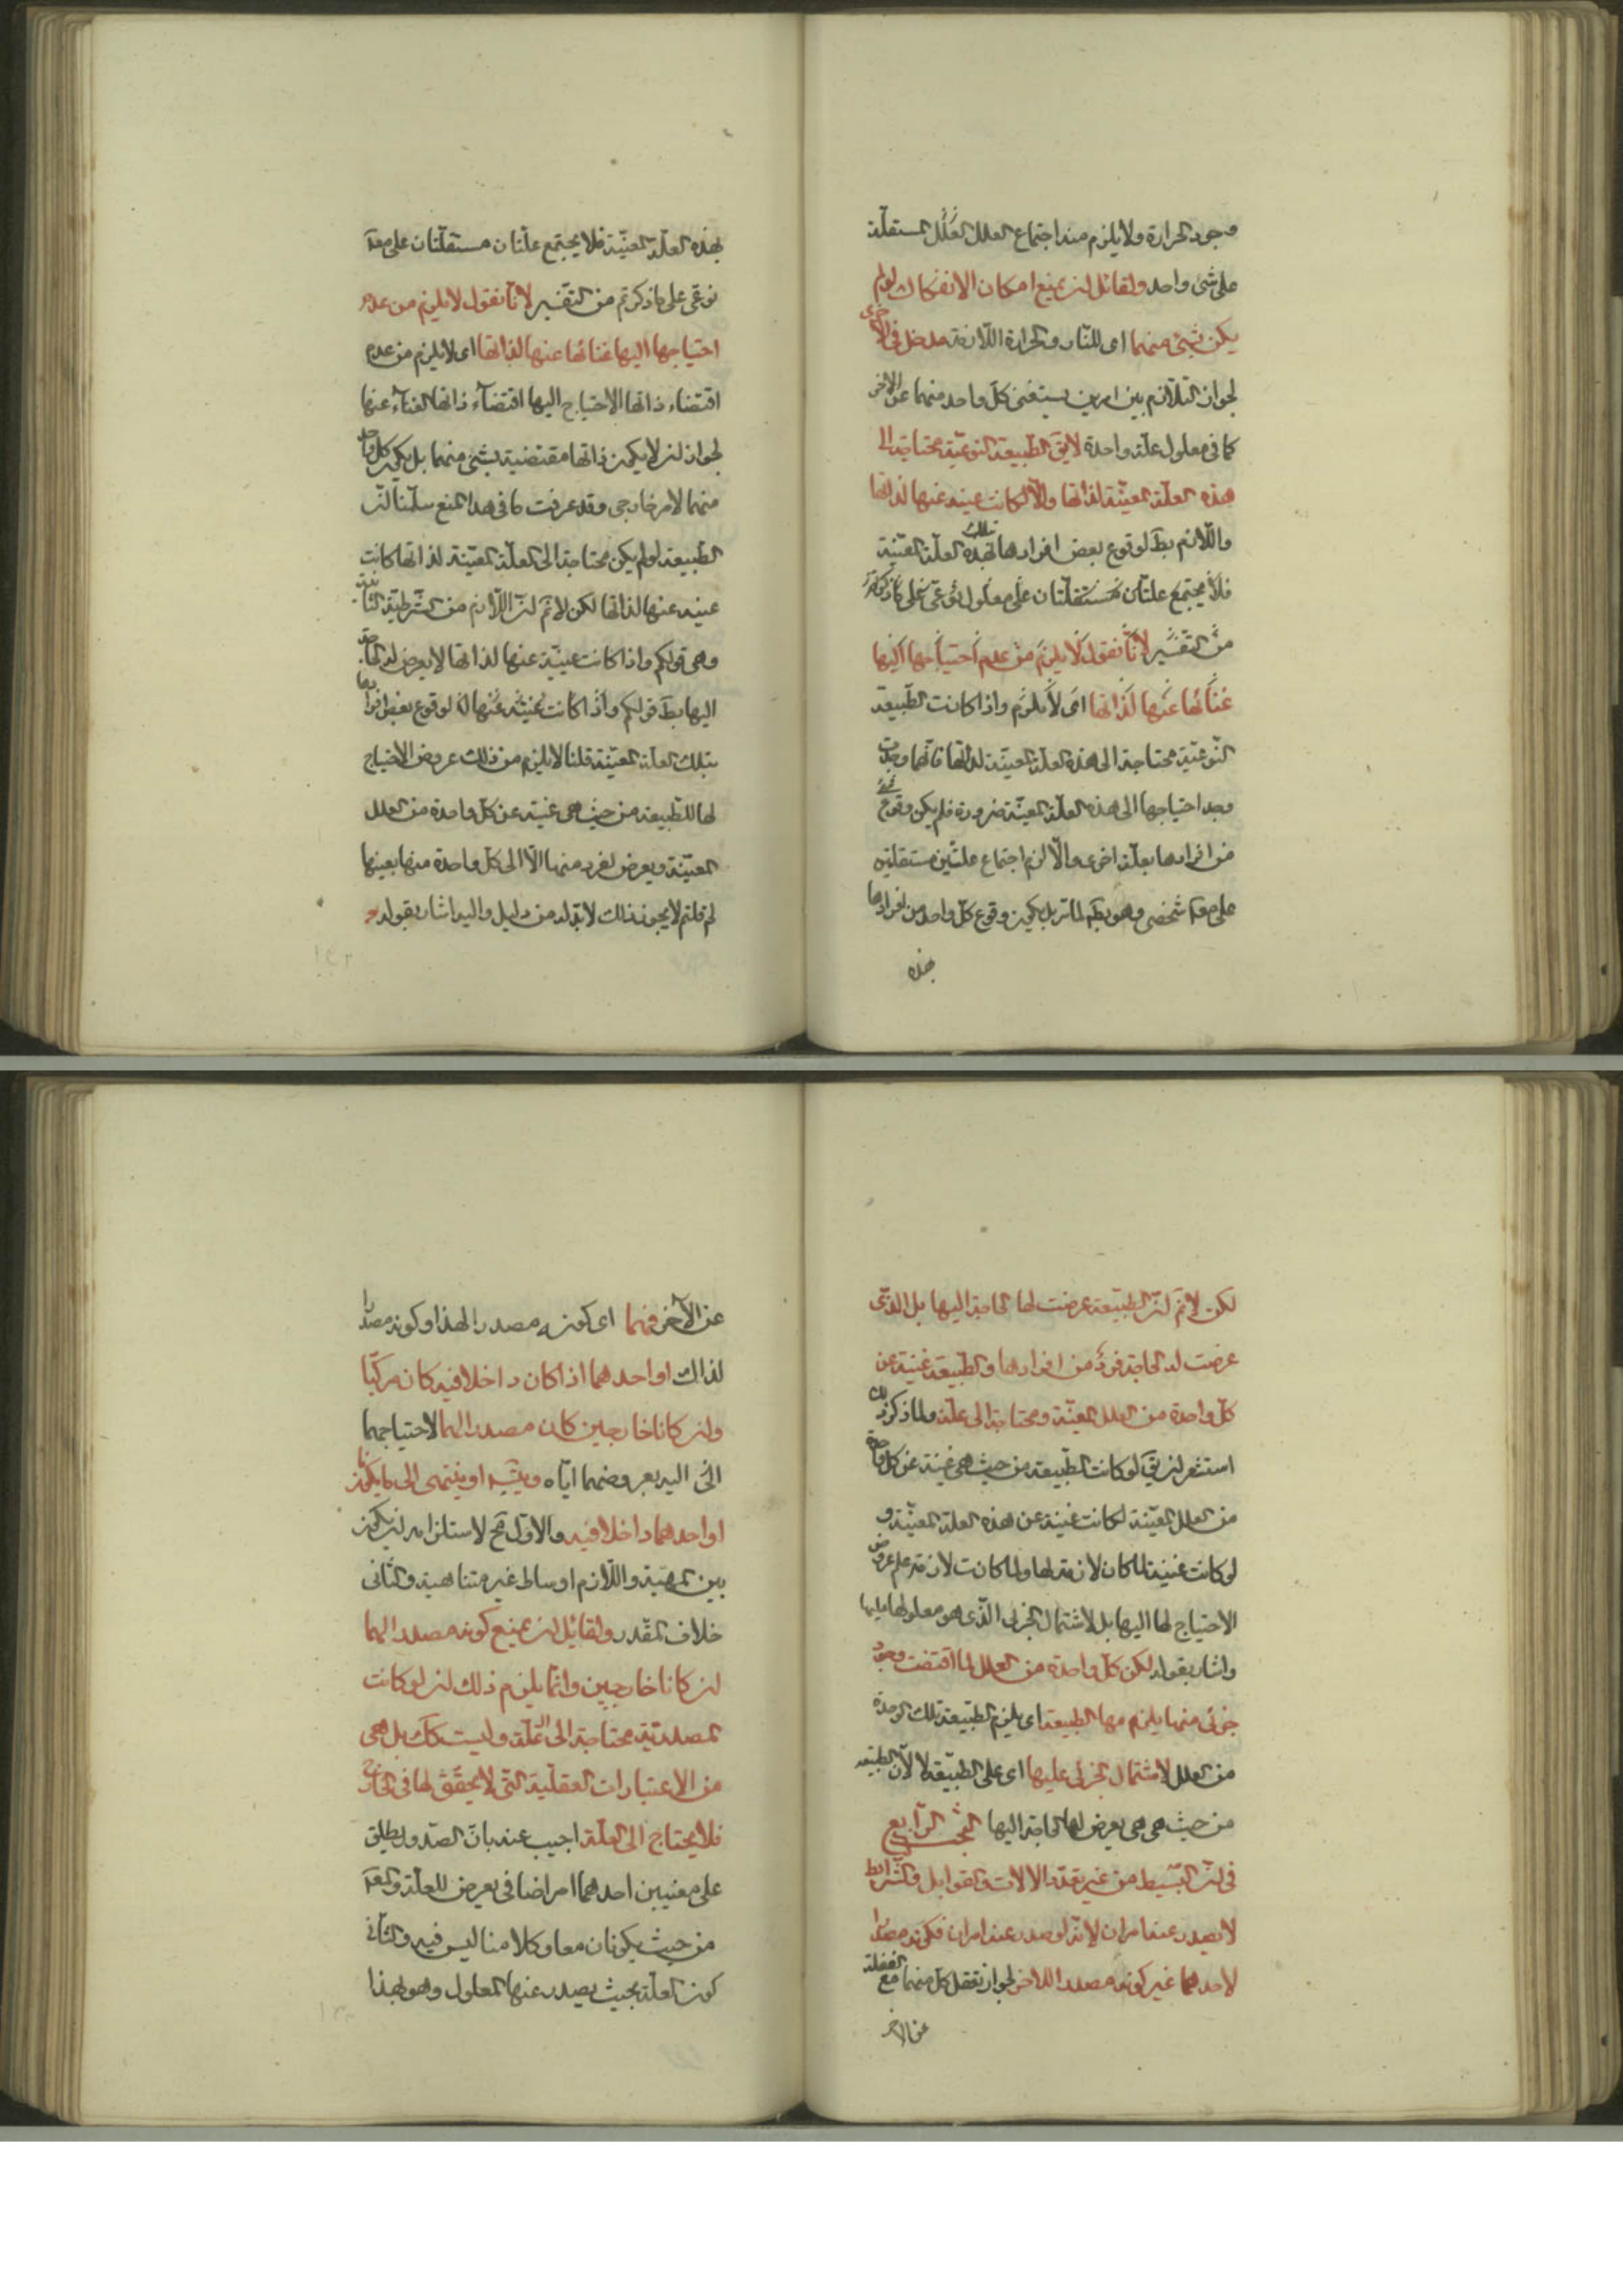 وجود الحرارة ولا يلزم منه اجتماع العلل العلل المستقلة
على شئ واحد ولقائل ان يمنع امكان الانفكاك لو لم
يكن لشئ منهما اى للنار والحرارة اللازمة مدخل فى الاخرى
لجواز التلازم بين امرين يستغنى كل واحد منهما عن الاخر
كما فى معلولى علة واحدة لا يق الطبيعة النوعية محتاجة الى
هذه العلة المعينة لذاتها والا لكانت غنية عنها لذاتها
واللازم بط لوقوع بعض افرادها بتلك بهذه العلة المعينة
فلا يجتمع علتان مستقلتان على معلول نوعى على ما ذكرتم
من التفسير لانا نقول لا يلزم من عدم احتياجها اليها
غنائها عنها لذاتها اى لا يلزم واذا كانت الطبيعة
النوعية محتاجة الى هذه العلة المعينة لذاتها فانها وجدت
وجد احتياجها الى هذه العلة المعينة ضرورة فلم يكن وقوع
من افرادها بعلة اخرى والا لزم اجتماع علتين مستقلتين
على مع شخصى وهو بط لما مر بل يكون وقوع كل واحد من افرادها
بهذه
بهذه العلة المعينة فلا يجتمع علتان مستقلتان على مع
نوعى على ما ذكرتم من التفسير لانا نقول لا يلزم من عدم
احتياجها اليها غنائها عنها لذاتها اى لا يلزم من عدم
اقتضاء ذاتها الاحتياج اليها اقتضاء ذاتها الغناء عنها
لجواز ان لا يكون ذاتها مقتضية لشئ منهما بل يكون كل واحد
منهما لامر خارجى وقد عرفت ما فى هذا المنع سلمنا ان
الطبيعة لو لم يكن محتاجة الى العلة المعينة لذاتها كانت
غنية عنها لذاتها لكن لا نم ان اللازم من الشرطية الثانية
وهى قولكم واذا كانت غنية عنها لذاتها لا يعرض لها الحاجة
اليها بط قولكم واذا كانت غنية عنها لوقوع بعض افرادها
بتلك العلة المعينة قلنا لا يلزم من ذلك عروض الاحتياج
لها للطبيعة من حيث هى غنية عن كل واحدة من العلل
المعينة ويعرض لفرد منها الا الى كل واحدة منها بعينها
لم قلتم لا يجوز ذلك لا بد له من دليل واليه اشار بقوله و
لكن لا نم ان الطبيعة عرضت لها الحاجة اليها بل الذى
عرضت له الحاجة فرد من افرادها والطبيعة غنية عن
كل واحدة من العلل المعينة ومحتاجة الى علة ولما ذكر ذلك
استشعر ان يق لو كانت الطبيعة من حيث هى غنية عن كل واحدة
من العلل المعينة لكانت غنية عن هذه العلة المعينة و
لو كانت غنية لما كان لازمة لها ولما كانت لازمة علم عروض
الاحتياج لها اليها بل لاشتمال الجزئى الذى هو معلولها عليها
واشار بقوله لكن كل واحدة من العلل لما اقتضت وجود
جزئى منها يلزم مها الطبيعة اى يلزم الطبيعة تلك الوحدة
من العلل لاشتمال الجزئى عليها اى على الطبيعة لا لان الطبيعة
من حيث هى هى يعرض لها الحاجة اليها البحث الرابع
فى ان البسيط من غير تعدد الالات والقوابل والشرايط
لا يصدر عنه امران لانه لو صدر عنه امران فكونه مصدرا
لاحدهما غير كونه مصدرا للاخر لجواز تعقل كل منهما مع الغفلة
عن الاخر
عن الآخر فهما اى كونه مصدرا لهذا وكونه مصدرا
لذاك او احدهما اذا كان داخلا فيه كان مركبا
وان كانا خارجين كان مصدرا لهما لاحتياجهما
الى اليه بعروضهما اياه ويتس او ينتهى الى ما يكونا
او احدهما داخلا فيه والاول مح لاستلزامه ان يكون
بين المهية واللازم اوساط غير متناهية والثانى
خلاف المقدر ولقائل ان يمنع كونه مصدرا لهما
ان كانا خارجين وانما يلزم ذلك ان لو كانت
المصدرية محتاجة الى العلة وليست كك بل هى
من الاعتبارات العقلية التى لا يحقق لها فى الخارج
فلا يحتاج الى العلة اجيب عنه بان الصدور يطلق
على معنيين احدهما امر اضافى يعرض للعلة والمع
من حيث يكونان معا وكلامنا ليس فيه والثانى
كون العلة بحيث يصدر عنها المعلول وهو بهذا